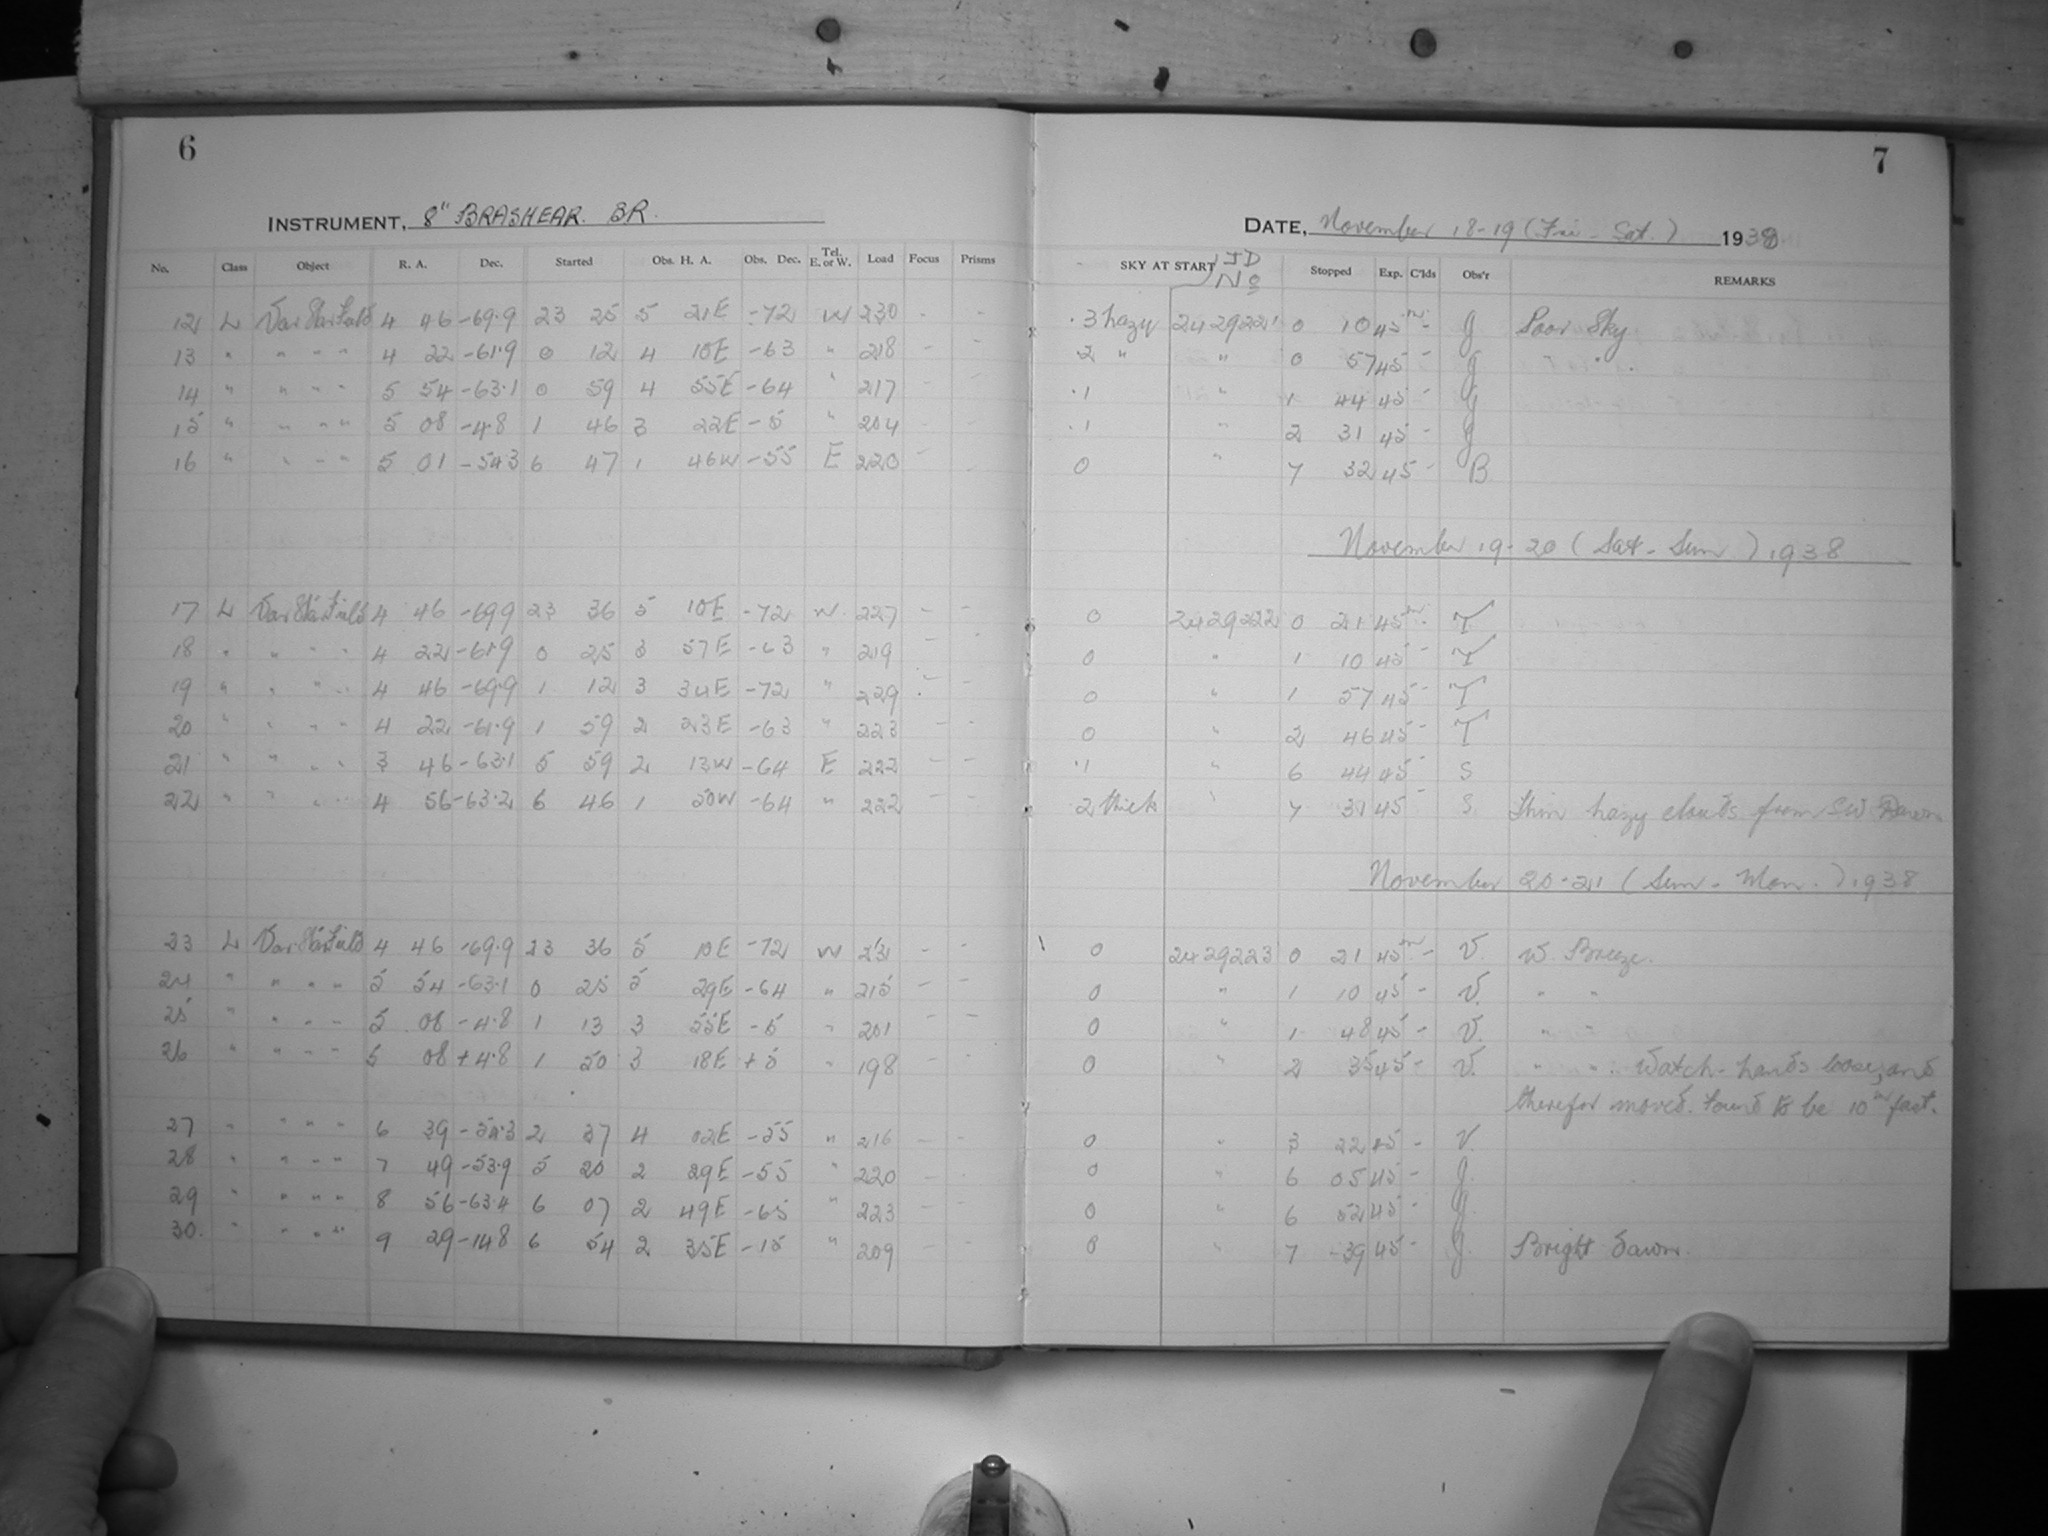 6
7
INSTRUMENT, 8" BRASHEAR. BR.
DATE, November 18-19 (Fri - Sat.) 1938
No. Class Object R. A. Dec. Started Obs. H. A. Obs. Dec. Tel. E. or W. Load Focus Prisms SKY AT START JD No Stopped Exp. C'lds Obs'r REMARKS
12 L Var Star Field 4 46 -69.9 23 25 5 21E -72 W 230 - - .3 hazy 2429221 0 10 45m - J Poor Sky.
13 " " " " 4 22 -61.9 0 12 4 10E -63 " 218 - - .2 " " 0 57 45 - J " "
14 " " " " 5 54 -63.1 0 59 4 55E -64 " 217 - - .1 " 1 44 45 - J
15 " " " " 5 08 -4.8 1 46 3 22E -5 " 204 - - .1 " 2 31 45 - J
16 " " " " 5 01 -54.3 6 47 1 46W -55 E 220 - - 0 " 7 32 45 - B
November 19-20 (Sat - Sun) 1938
17 L Var Star Field 4 46 -69.9 23 36 5 10E -72 W. 227 - - 0 2429222 0 21 45m - T
18 " " " " 4 22 -61.9 0 25 3 57E -63 " 219 - - 0 " 1 10 45 - T
19 " " " " 4 46 -69.9 1 12 3 34E -72 " 229 - - 0 " 1 57 45 - T
20 " " " " 4 22 -61.9 1 59 2 23E -63 " 223 - - 0 " 2 46 45 - T
21 " " " " 3 46 -63.1 5 59 2 13W -64 E 222 - - .1 " 6 44 45 - S
22 " " " " 4 56 -63.2 6 46 1 50W -64 " 222 - - 2 thick " 7 31 45 - S. Thin hazy clouds from SW Dawn
November 20-21 (Sun - Mon.) 1938
23 L Var Star Field 4 46 -69.9 23 36 5 10E -72 W 231 - - 0 2429223 0 21 45m - V. W. Breeze.
24 " " " " 5 54 -63.1 0 25 5 29E -64 " 215 - - 0 " 1 10 45 - V. " "
25 " " " " 5 08 -4.8 1 13 3 55E -5 " 201 - - 0 " 1 48 45 - V. " "
26 " " " " 5 08 +4.8 1 50 3 18E +5 " 198 - - 0 " 2 35 45 - V. " " Watch-hands loose, and
therefor moved. Found to be 10m fast.
27 " " " " 6 39 2 37 4 02E -55 " 216 - - 0 " 3 22 45 - V.
28 " " " " 7 49 -53.9 5 20 2 29E -55 " 220 - - 0 " 6 05 45 - J.
29 " " " " 8 56 -63.4 6 07 2 49E -65 " 223 - - 0 " 6 52 45 - J.
30. " " " " 9 29 -14.8 6 54 2 35E -15 " 209 - - 0 " 7 39 45 - J. Bright dawn.